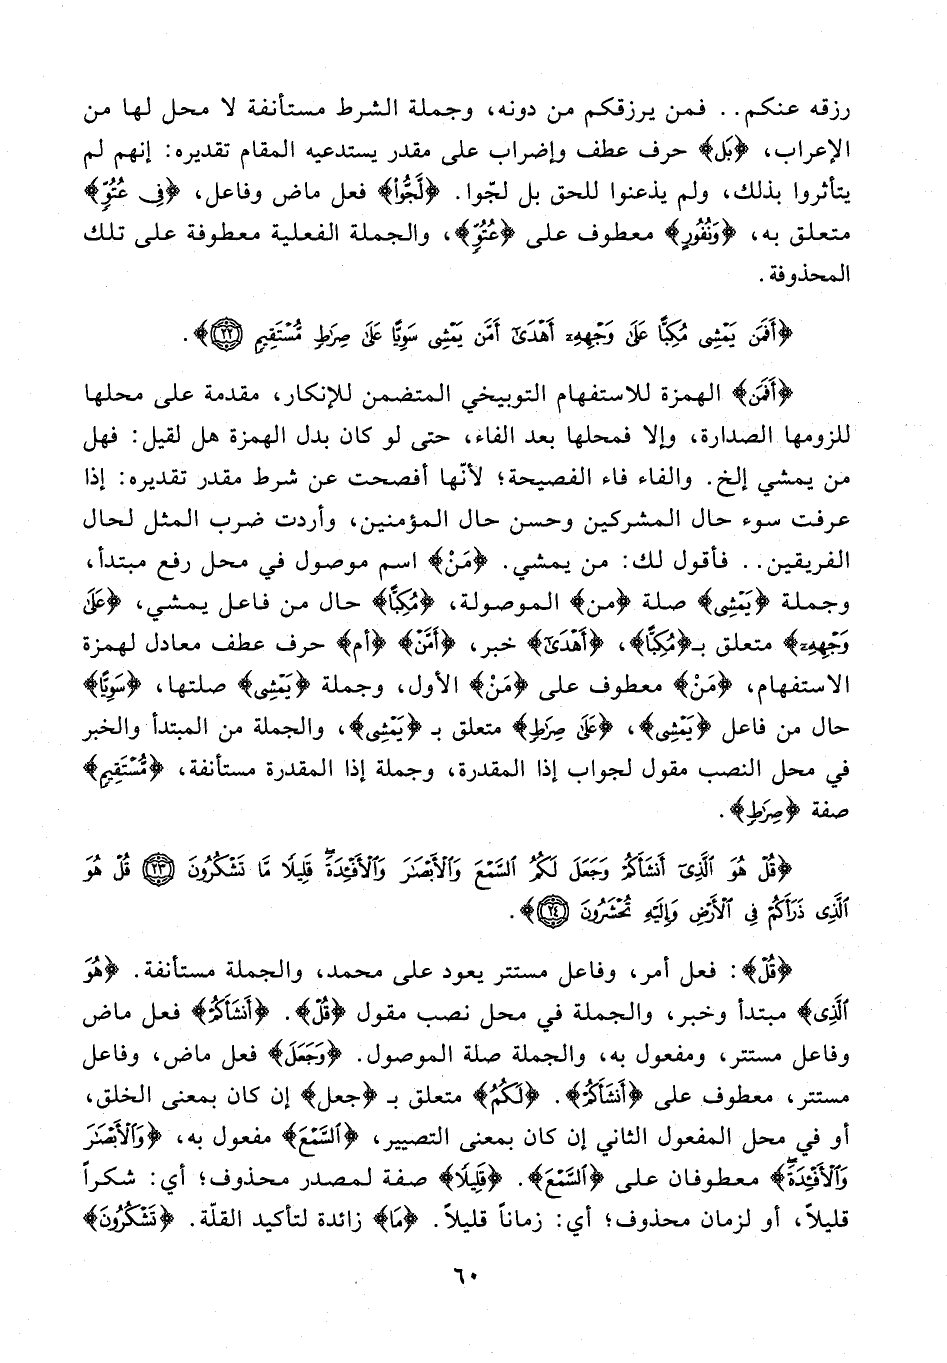 رزقه عنكم.. فمن يرزقكم من دونه، وجملة الشرط مستأنفة لا محل لها من
الإعراب، ﴿بَل﴾ حرف عطف وإضراب على مقدر يستدعيه المقام تقديره: إنهم لم
يتأثروا بذلك، ولم يذعنوا للحق بل لجّوا. ﴿لَّجُّوا۟﴾ فعل ماض وفاعل، ﴿فِى عُتُوٍّ﴾
متعلق به، ﴿وَنُفُورٍ﴾ معطوف على ﴿عُتُوٍّ﴾، والجملة الفعلية معطوفة على تلك
المحذوفة.
﴿أَفَمَن يَمْشِى مُكِبًّا عَلَىٰ وَجْهِهِۦٓ أَهْدَىٰٓ أَمَّن يَمْشِى سَوِيًّا عَلَىٰ صِرَٰطٍ مُّسْتَقِيمٍ ٢٢﴾.
﴿أَفَمَن﴾ الهمزة للاستفهام التوبيخي المتضمن للإنكار، مقدمة على محلها
للزومها الصدارة، وإلا فمحلها بعد الفاء، حتى لو كان بدل الهمزة هل لقيل: فهل
من يمشي إلخ. والفاء فاء الفصيحة؛ لأنّها أفصحت عن شرط مقدر تقديره: إذا
عرفت سوء حال المشركين وحسن حال المؤمنين، وأردت ضرب المثل لحال
الفريقين.. فأقول لك: من يمشي. ﴿مَنْ﴾ اسم موصول في محل رفع مبتدأ،
وجملة ﴿يَمْشِى﴾ صلة ﴿من﴾ الموصولة، ﴿مُكِبًّا﴾ حال من فاعل يمشي، ﴿عَلَىٰ
وَجْهِهِۦٓ﴾ متعلق بـ﴿مُكِبًّا﴾، ﴿أَهْدَىٰٓ﴾ خبر، ﴿أَمَّنْ﴾ ﴿أم﴾ حرف عطف معادل لهمزة
الاستفهام، ﴿مَنْ﴾ معطوف على ﴿مَنْ﴾ الأول، وجملة ﴿يَمْشِى﴾ صلتها، ﴿سَوِيًّا﴾
حال من فاعل ﴿يَمْشِى﴾، ﴿عَلَىٰ صِرَٰطٍ﴾ متعلق بـ ﴿يَمْشِى﴾، والجملة من المبتدأ والخبر
في محل النصب مقول لجواب إذا المقدرة، وجملة إذا المقدرة مستأنفة، ﴿مُّسْتَقِيمٍ﴾
صفة ﴿صِرَٰطٍ﴾.
﴿قُلْ هُوَ ٱلَّذِىٓ أَنشَأَكُمْ وَجَعَلَ لَكُمُ ٱلسَّمْعَ وَٱلْأَبْصَٰرَ وَٱلْأَفْـِٔدَةَ ۖ قَلِيلًا مَّا تَشْكُرُونَ ٢٣ قُلْ هُوَ
ٱلَّذِى ذَرَأَكُمْ فِى ٱلْأَرْضِ وَإِلَيْهِ تُحْشَرُونَ ٢٤﴾.
﴿قُلْ﴾: فعل أمر، وفاعل مستتر يعود على محمد، والجملة مستأنفة. ﴿هُوَ
ٱلَّذِى﴾ مبتدأ وخبر، والجملة في محل نصب مقول ﴿قُلْ﴾. ﴿أَنشَأَكُمْ﴾ فعل ماض
وفاعل مستتر، ومفعول به، والجملة صلة الموصول. ﴿وَجَعَلَ﴾ فعل ماض، وفاعل
مستتر، معطوف على ﴿أَنشَأَكُمْ﴾. ﴿لَكُمُ﴾ متعلق بـ ﴿جعل﴾ إن كان بمعنى الخلق،
أو في محل المفعول الثاني إن كان بمعنى التصيير، ﴿ٱلسَّمْعَ﴾ مفعول به، ﴿وَٱلْأَبْصَٰرَ
وَٱلْأَفْـِٔدَةَ ۖ﴾ معطوفان على ﴿ٱلسَّمْعَ﴾. ﴿قَلِيلًا﴾ صفة لمصدر محذوف؛ أي: شكراً
قليلاً، أو لزمان محذوف؛ أي: زماناً قليلاً. ﴿مَا﴾ زائدة لتأكيد القلّة. ﴿تَشْكُرُونَ﴾
٦٠